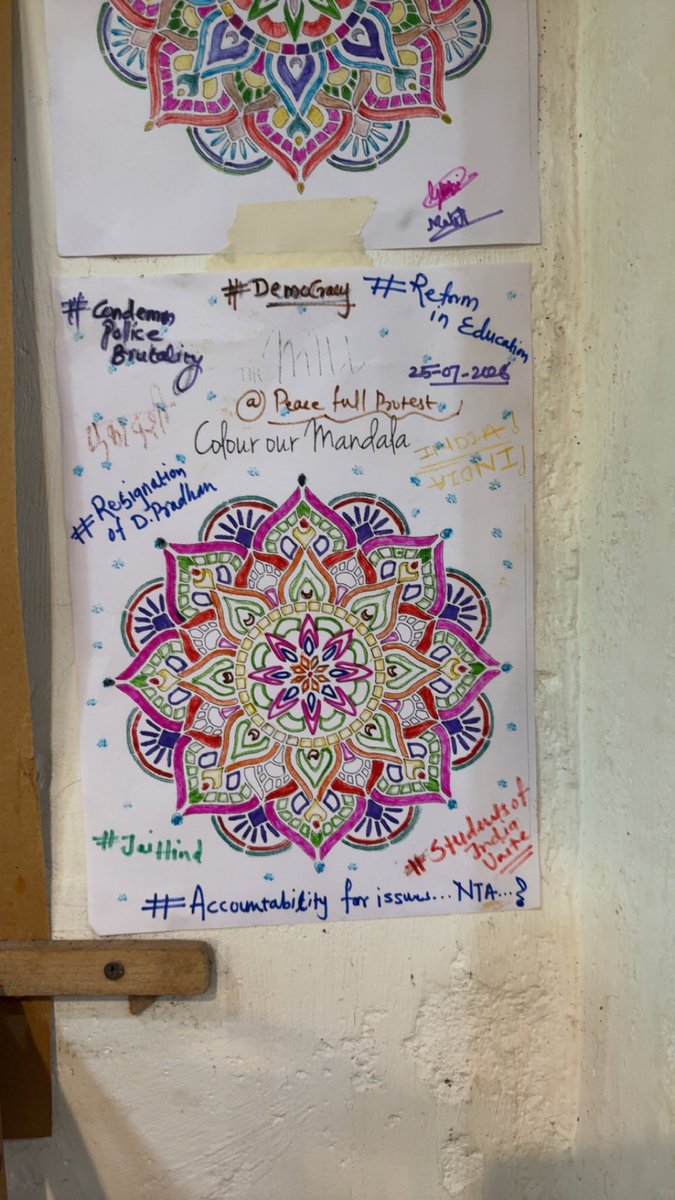 #Democracy
#Reform
in Education
#Condemn
Police
Brutality
THE Mill
25-07-2026
@ Peace full Protest
Colour our Mandala
INDIA
INDIA
#Resignation
of D. Pradhan
#Jai Hind
#Students of
India
Unite
#Accountability for issues... NTA...?